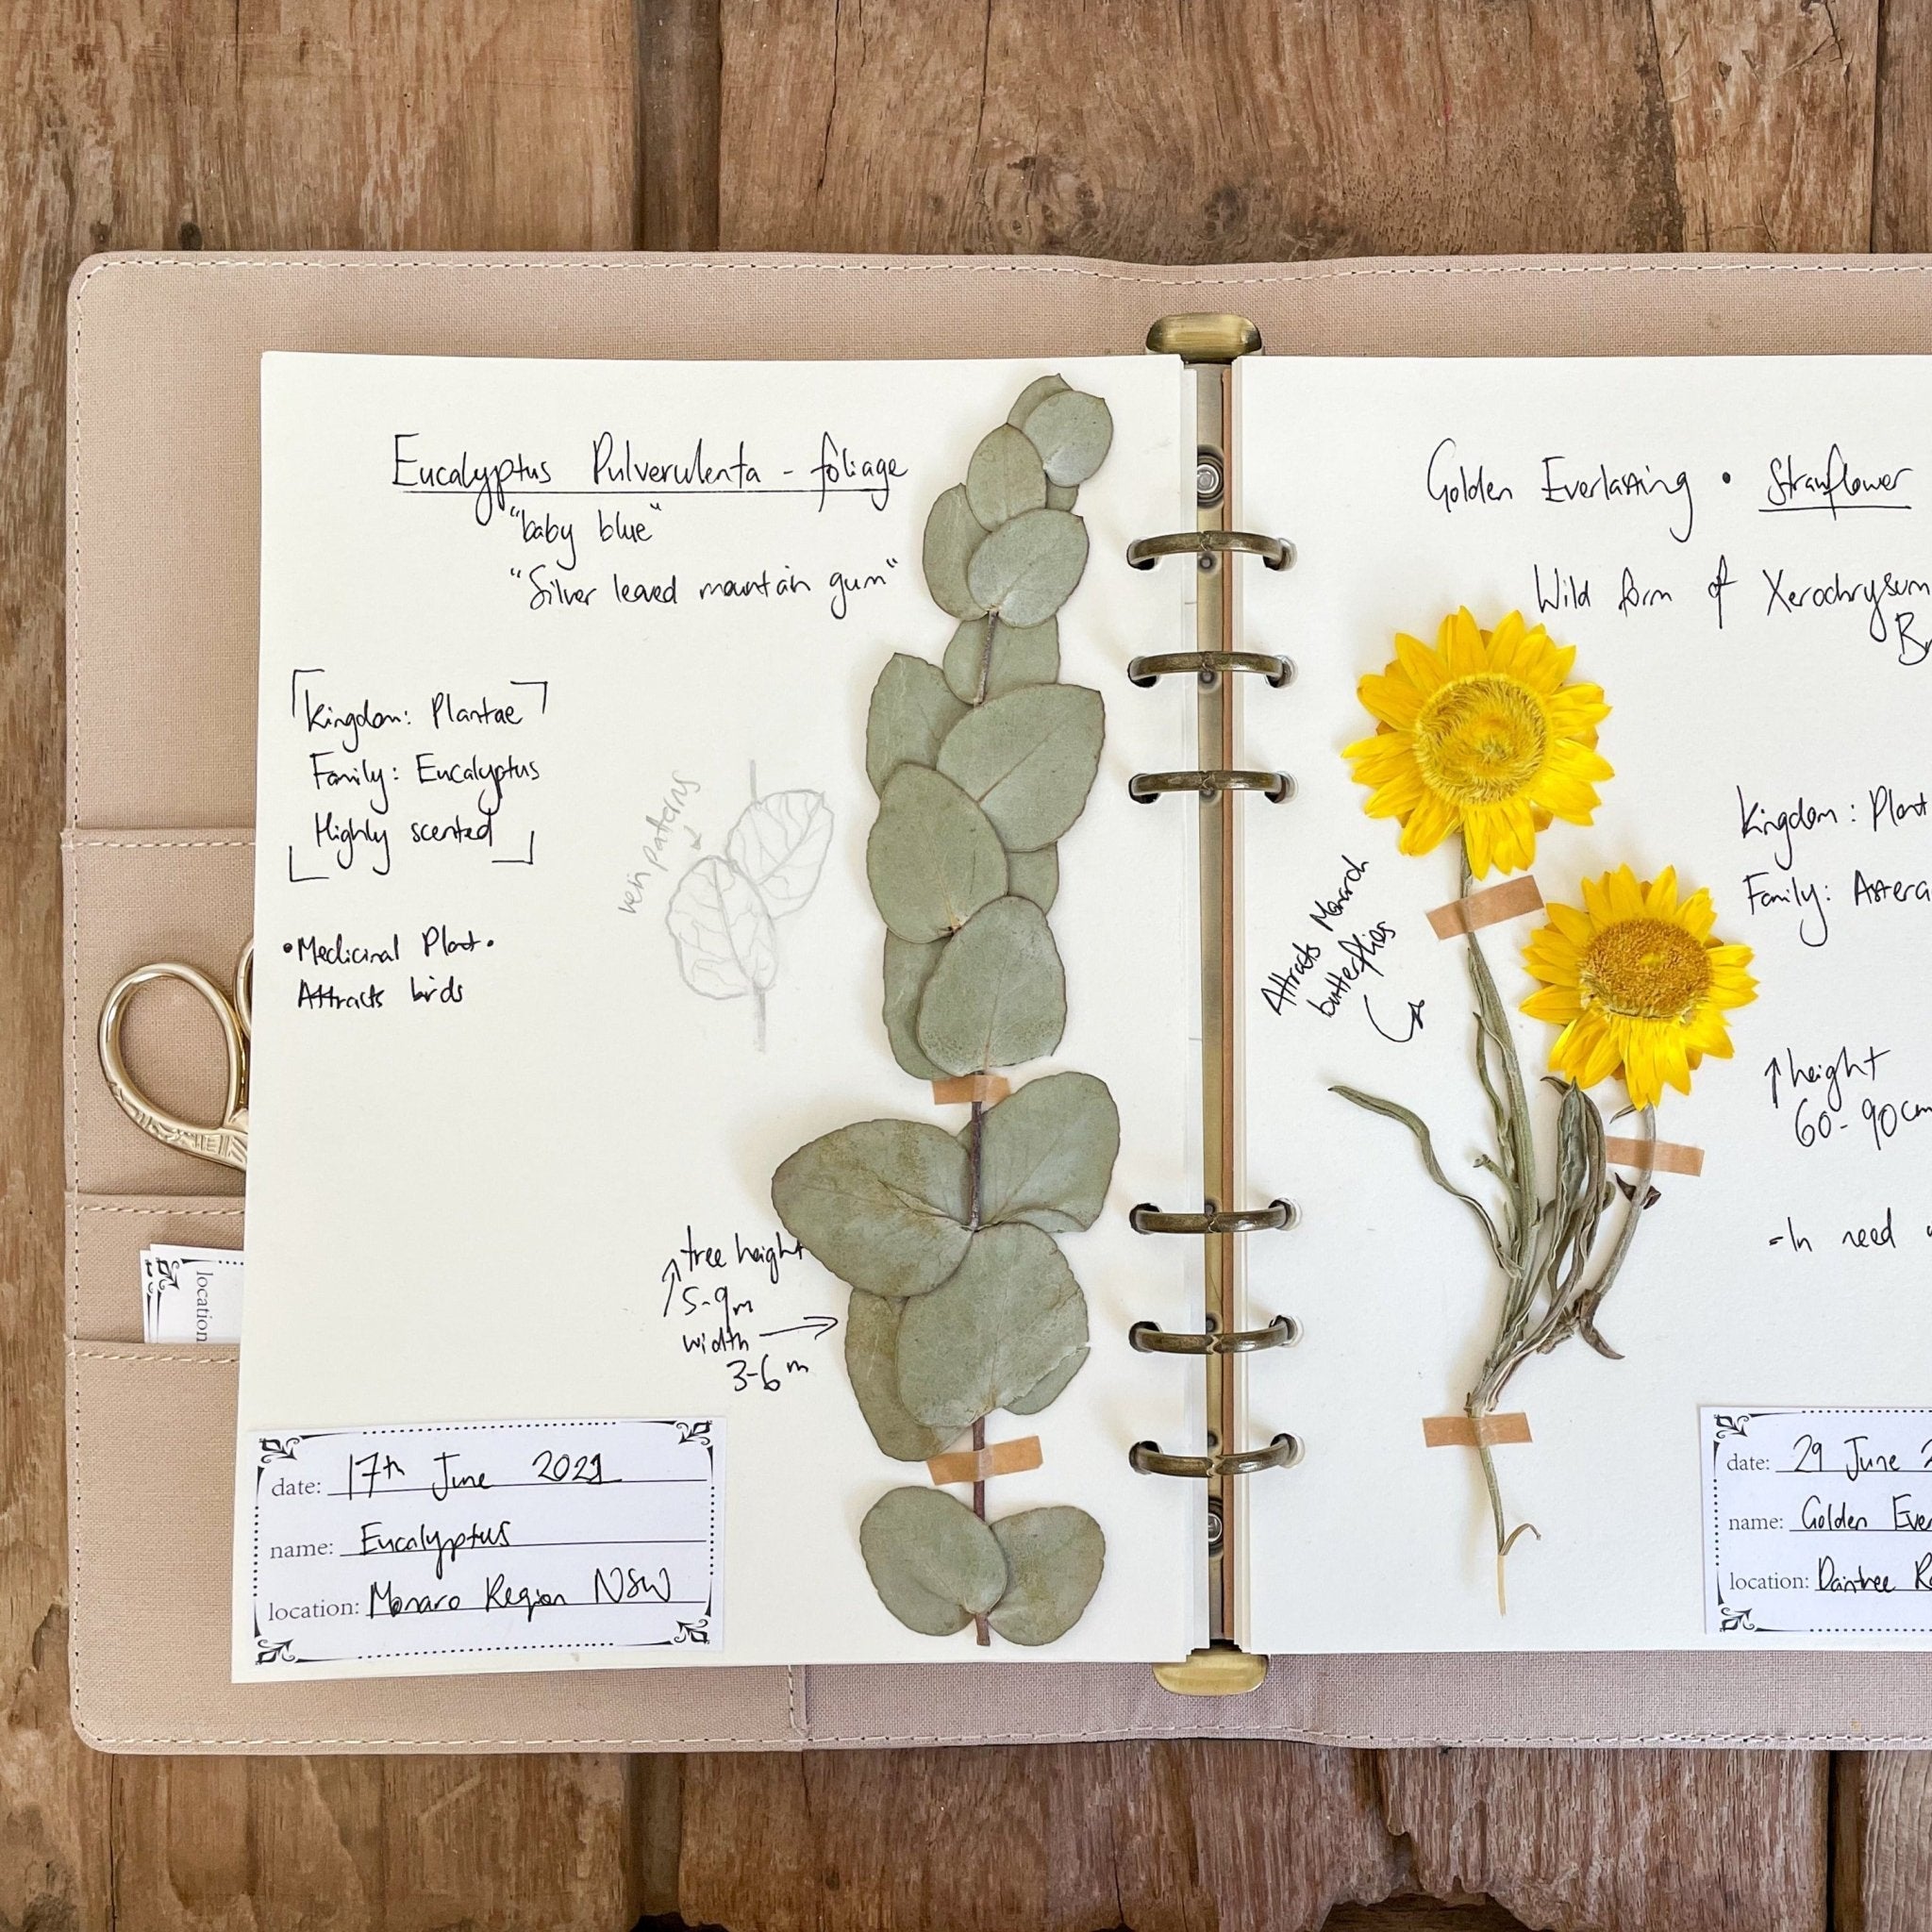 Eucalyptus Pulverulenta - foliage
"baby blue"
"Silver leaved mountain gum"
Kingdom: Plantae
Family: Eucalyptus
Highly scented
•Medicinal Plant•
Attracts birds
vein patterns
↑ tree height
5-9m
width →
3-6m
date: 17th June 2021
name: Eucalyptus
location: Monaro Region NSW
location
Golden Everlasting • Strawflower
Wild form of Xerochrysum
Br
Attracts Monarch
butterflies
Kingdom: Plant
Family: Astera
↑ height
60-90cm
-In need
date: 29 June 2
name: Golden Ever
location: Daintree Ra